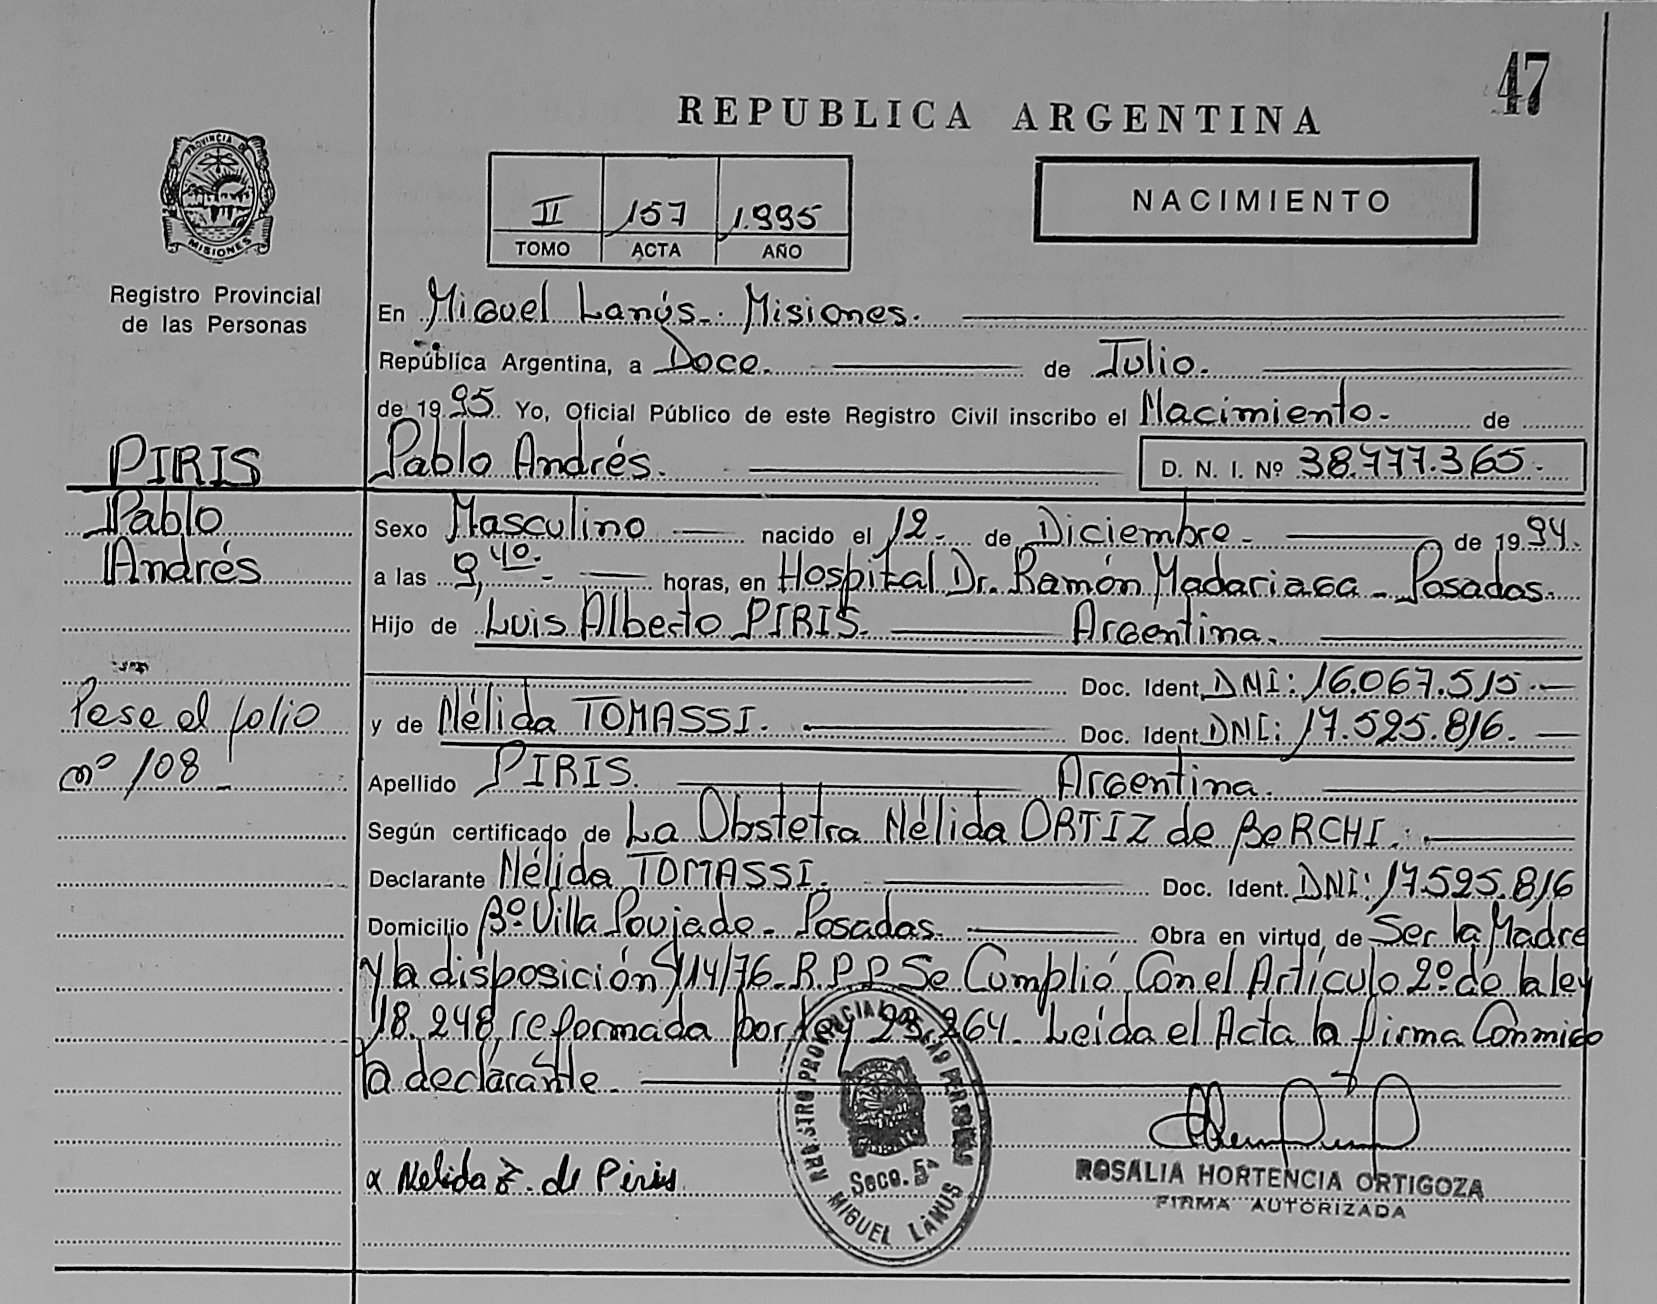 47
REPUBLICA ARGENTINA
PROVINCIA DE
MISIONES
Registro Provincial
de las Personas
II 157 1.995
TOMO ACTA AÑO
NACIMIENTO
En Miguel Lanús.. Misiones.
República Argentina, a Doce. de Julio.
de 1995. Yo, Oficial Público de este Registro Civil inscribo el Nacimiento.- de
PIRIS Pablo Andrés. D. N. I. Nº 38.777.365.-
Pablo Sexo Masculino nacido el 12.- de Diciembre.- de 1994.
Andrés a las 9,40.- horas, en Hospital Dr. Ramón Madariaga - Posadas.
Hijo de Luis Alberto PIRIS. Argentina.
Doc. Ident. DNI: 16.067.515.-
Pase al folio y de Nélida TOMASSI. Doc. Ident. DNI: 17.525.816.-
nº 108.- Apellido PIRIS. Argentina.
Según certificado de La Obstetra Nélida ORTIZ de BeRCHI.
Declarante Nélida TOMASSI. Doc. Ident. DNI: 17.525.816
Domicilio Bº Villa Poujade - Posadas. Obra en virtud de Ser la Madre
y la disposición 114/76. R.P.P. Se Cumplió Con el Artículo 2º de la ley
18.248, reformada por ley 23.264. Leída el Acta la firma Conmigo
la declarante.
α Nelida de Piris
REGISTRO PROVINCIAL DE LAS PERSONAS
Secc. 5ª
MIGUEL LANUS
ROSALIA HORTENCIA ORTIGOZA
FIRMA AUTORIZADA